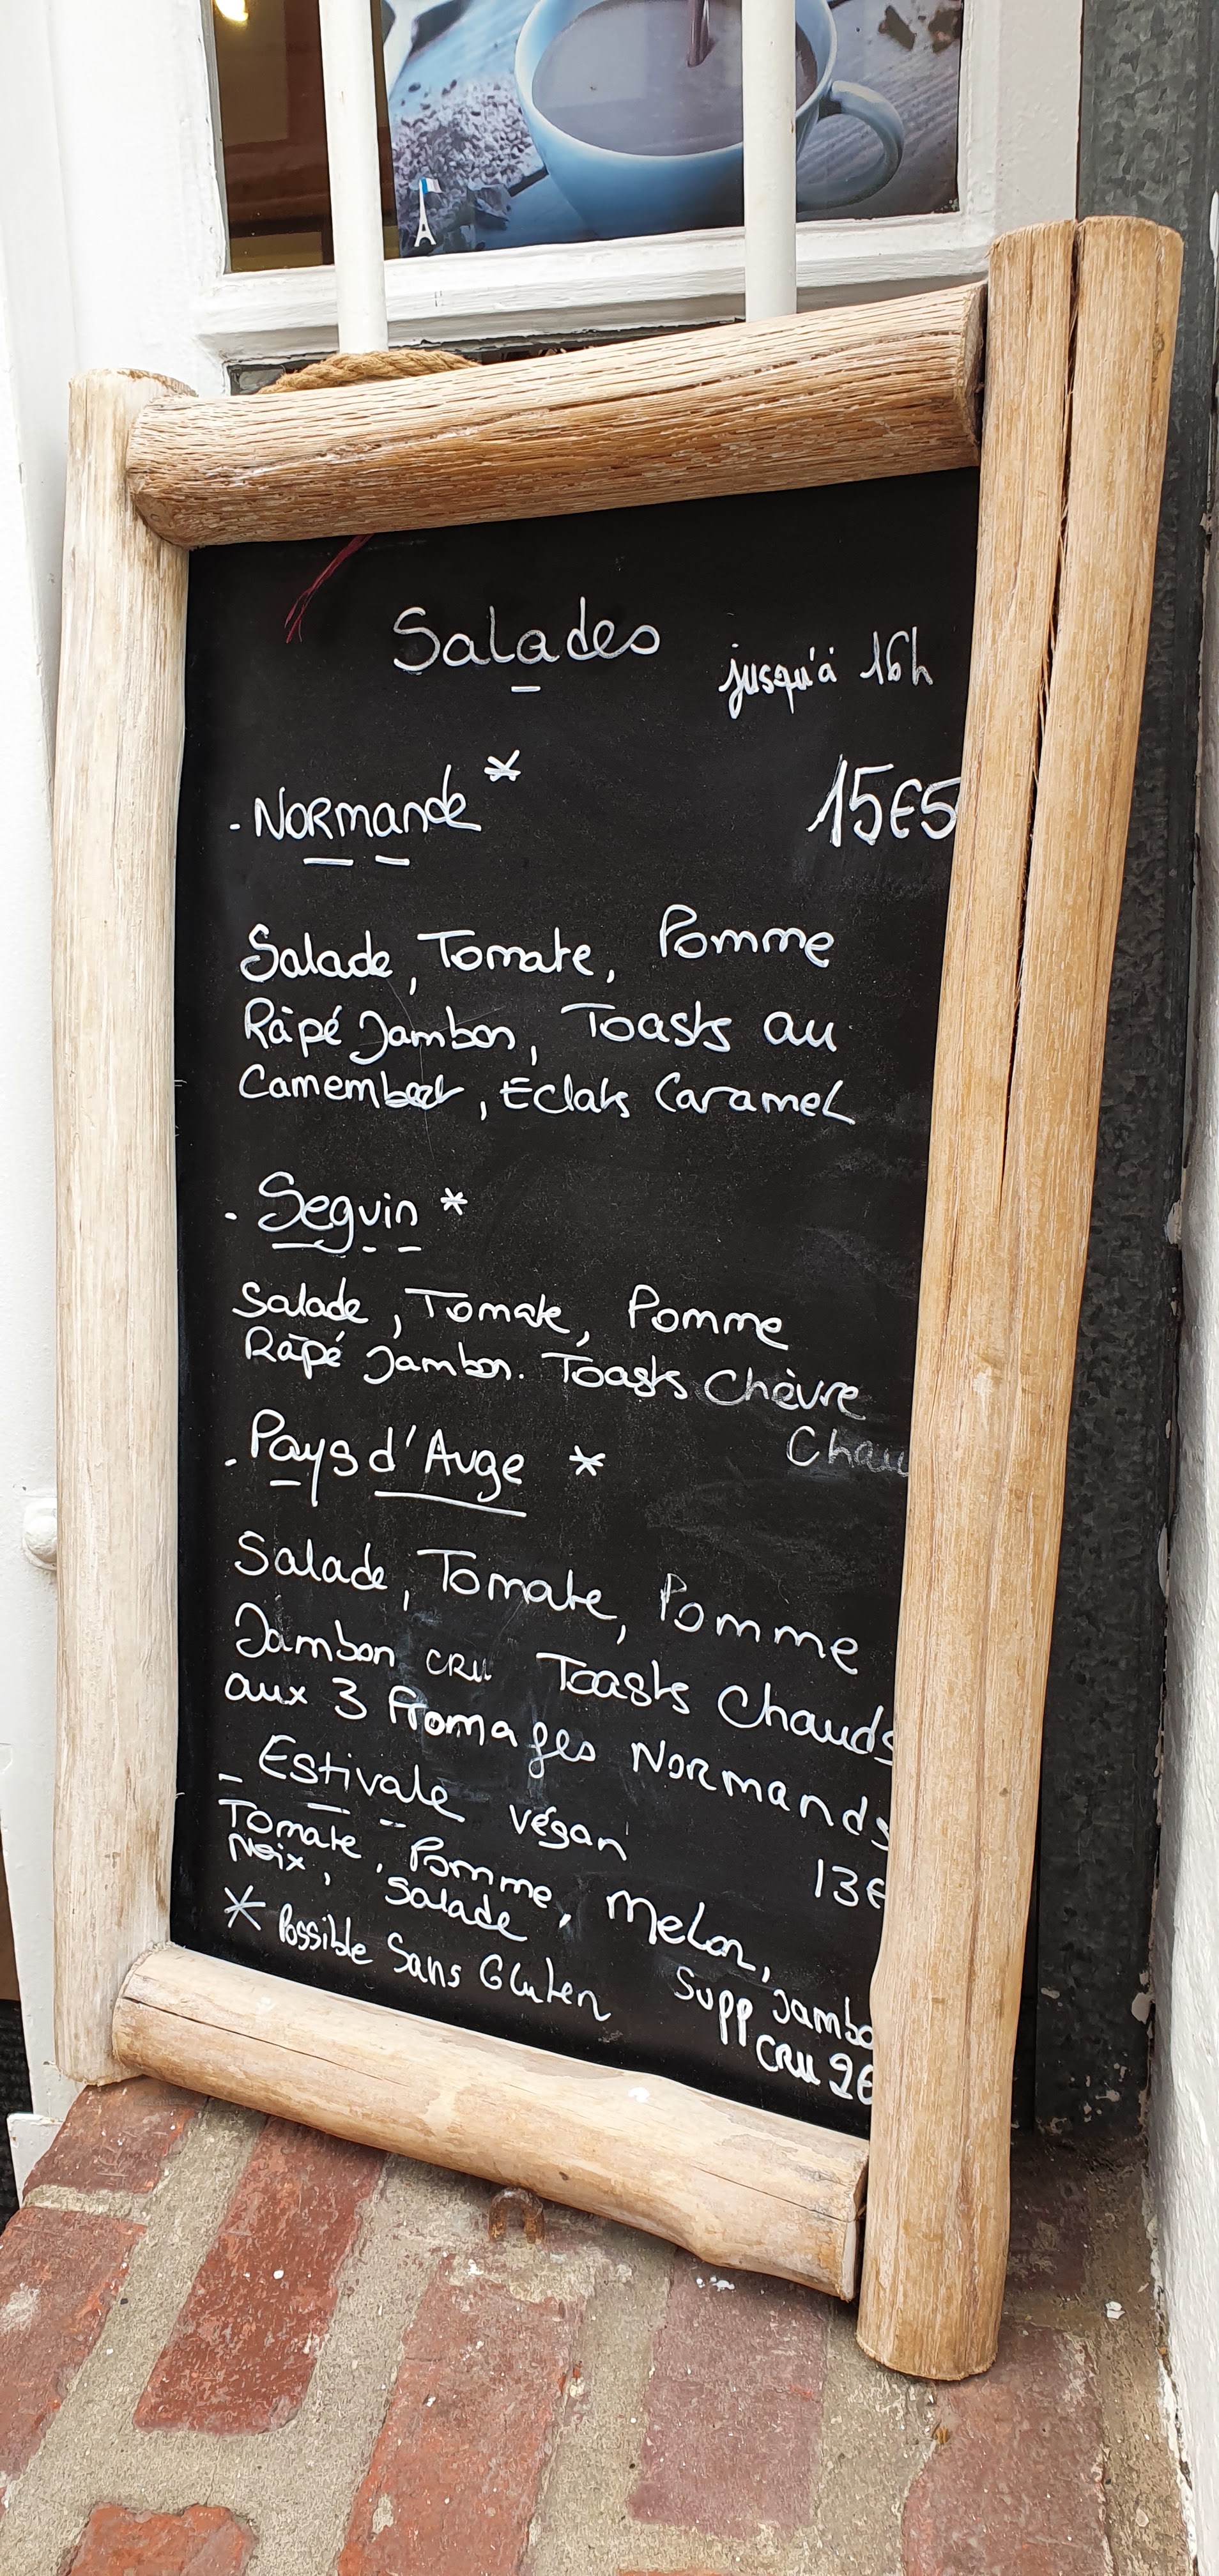 Salades
jusqu'à 16h
- Normande * 15€5
Salade, Tomate, Pomme
Râpé Jambon, Toasts au
Camembert, Eclats Caramel
- Seguin *
Salade, Tomate, Pomme
Râpé Jambon. Toasts Chèvre
Chau
- Pays d'Auge *
Salade, Tomate, Pomme
Jambon cru Toasts Chauds
aux 3 Fromages Normands
- Estivale végan 13€
Tomate, Pomme, Melon,
Noix, Salade
* Possible Sans Gluten
Supp Jambo
CRU 2€